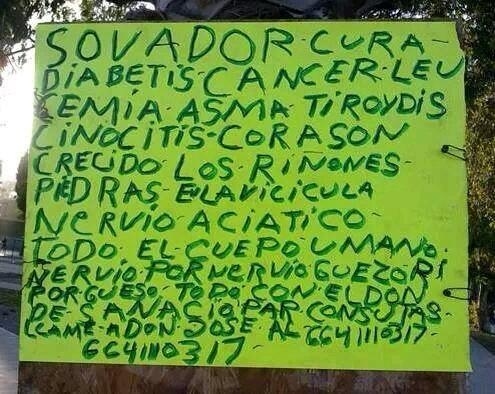 SOVADOR-CURA-
DIABETIS-CANCER-LEU
CEMIA-ASMA-TIROYDIS
CINOCITIS-CORASON
CRECIDO-LOS-RIÑONES-
PIEDRAS-ENLAVICICULA
NERVIO-ACIATICO-
TODO-EL-CUEPO-UMANO-
NERVIO-POR-NERVIO-GUEZO
PORGUESO-TODO-CON-ELDON
DE-SANACIO-PAR-CONSUTAS-
LLAME-ADON-JOSE AL 6641110317-
6641110317-